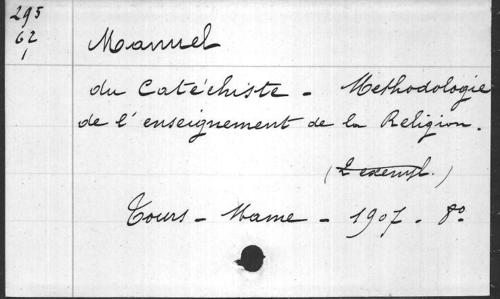 295
62
1
Manuel
du Catéchiste - Methodologie
de l'enseignement de la Religion.
(2 exempl.)
Tours - Mame - 1907 - 8º